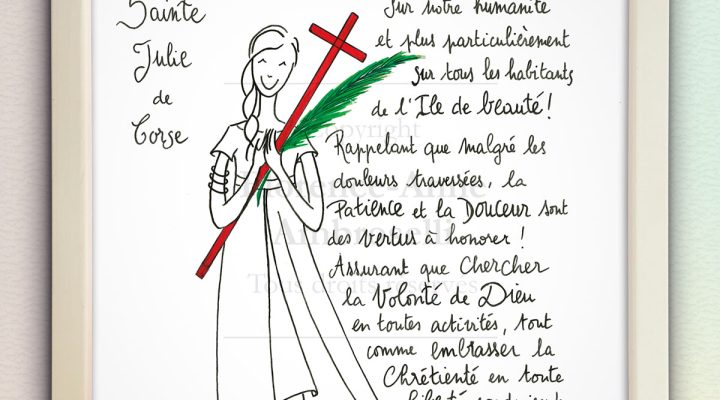 Sainte
Julie
de
Corse
Sur notre humanité
et plus particulièrement
sur tous les habitants
de l'Ile de beauté !
Rappelant que malgré les
douleurs traversées, la
Patience et la Douceur sont
des vertus à honorer !
Assurant que Chercher
la Volonté de Dieu
en toutes activités, tout
comme embrasser la
Chrétienté en toute
liberté
Copyright
Florence-Anne
Ambroselli
Tous droits réservés